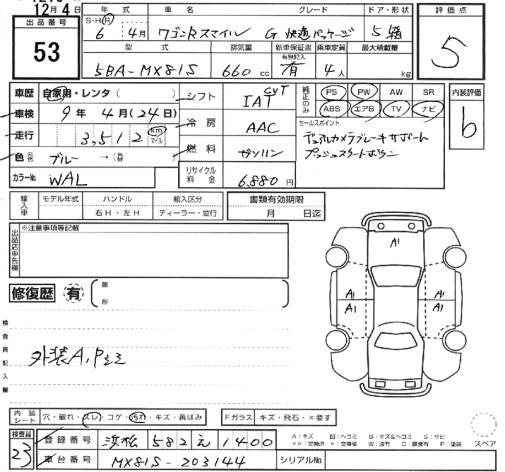 12月4日
出品番号
53
年式 車名 グレード ドア・形状
S・H・R 6年 4月 ワゴンRスマイル G 快適パッケージ 5 箱
型式 排気量 新車保証書 有無記入 乗車定員 最大積載量
5BA-MX81S 660cc 有 4人 kg
評価点
5
車歴 自家用・レンタ( )
車検 9年 4月(24日)
走行 3,512 km マイル
色 ブルー →( )
カラーNo WAL
シフト IAT CVT
冷房 AAC
燃料 ガソリン
リサイクル料金 6,880円
純正のみ
PS PW AW SR
ABS エアB TV ナビ
セールスポイント
デュアルカメラブレーキサポート
プッシュスタートボタン
内装評価
b
輸入車 モデル年式 ハンドル 輸入区分
右H・左H ディーラー・並行
書類有効期限
月 日迄
出品店申告欄
※注意事項等記載
修復歴 有
箇所
検査員記入欄
外装A,Pミミ
A1
A1 A1
A1 A1
内装シート 穴・破れ・スレ・コゲ・汚れ・キズ・黄ばみ
Fガラス キズ・飛石・×要す
検査員
23
登録番号 浜松 582 え 1400
車台番号 MX81S-203144
シリアルNo
A:キズ B:キズ&ヘコミ S:サビ
スペア